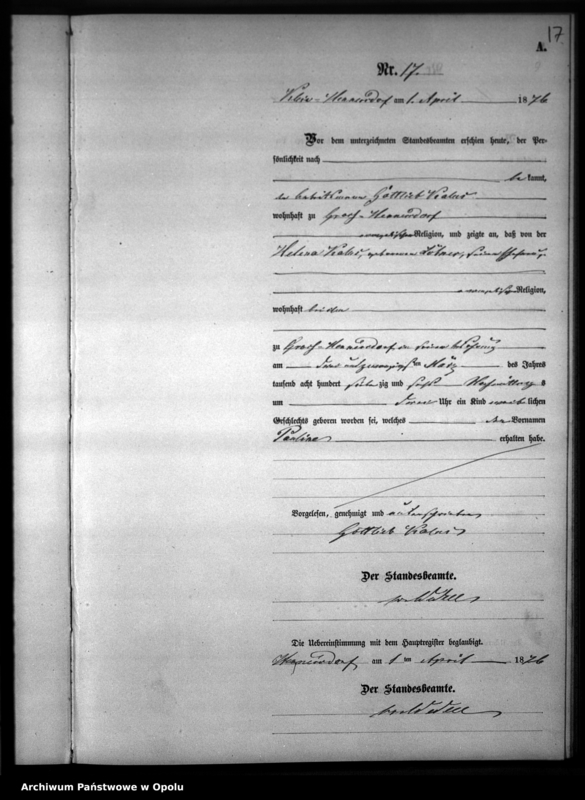 17
A.
Nr. 17.
Hennersdorf am 1. April 1876
Vor dem unterzeichneten Standesbeamten erschien heute, der Per-
sönlichkeit nach
be kannt,
der Gottlieb
wohnhaft zu Groß-Hennersdorf
evangelischer Religion, und zeigte an, daß von der
Helena geborenen seiner Ehefrau,
evangelischer Religion,
wohnhaft bei ihm
zu Groß-Hennersdorf in seiner
am ten März des Jahres
tausend acht hundert sieben zig und sechs Nachmittags
um Uhr ein Kind weib lichen
Geschlechts geboren worden sei, welches den Vornamen
Pauline erhalten habe.
Vorgelesen, genehmigt und unterschrieben
Gottlieb
Der Standesbeamte.
Die Uebereinstimmung mit dem Hauptregister beglaubigt.
Hennersdorf am 1 ten April 1876
Der Standesbeamte.
Archiwum Państwowe w Opolu